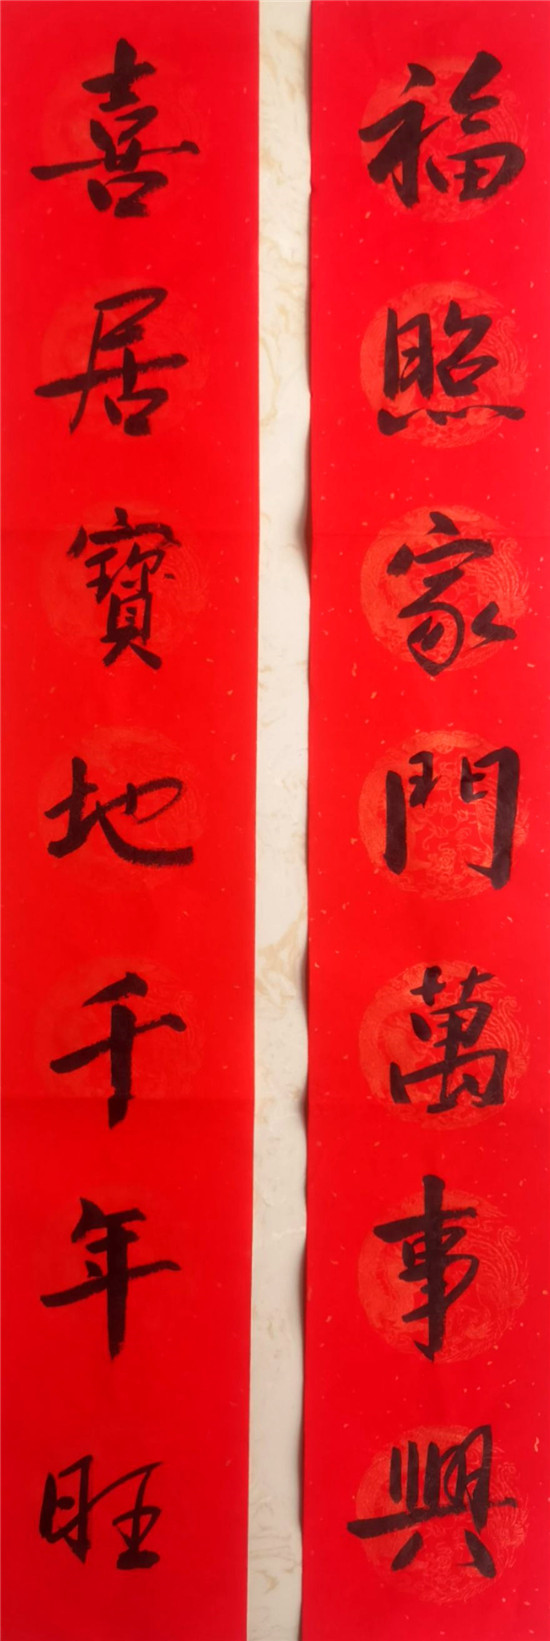 福照家門萬事興
喜居寶地千年旺